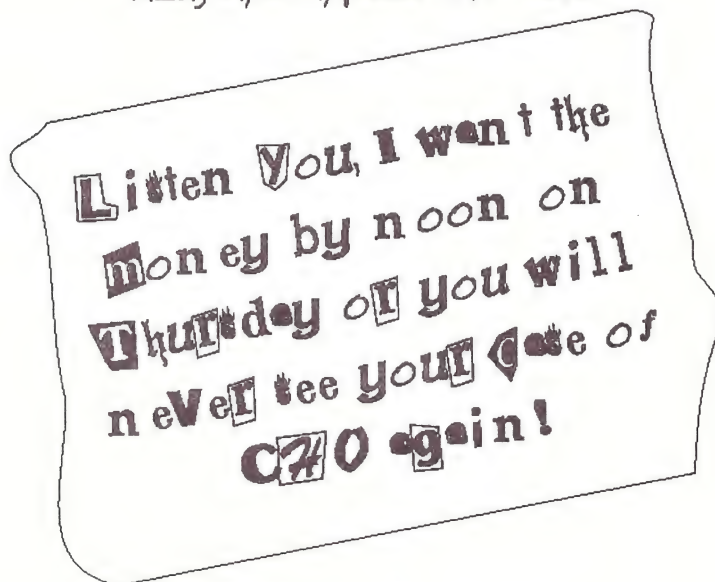 Listen You, I want the
money by noon on
Thursday or you will
never see your case of
CHO again!